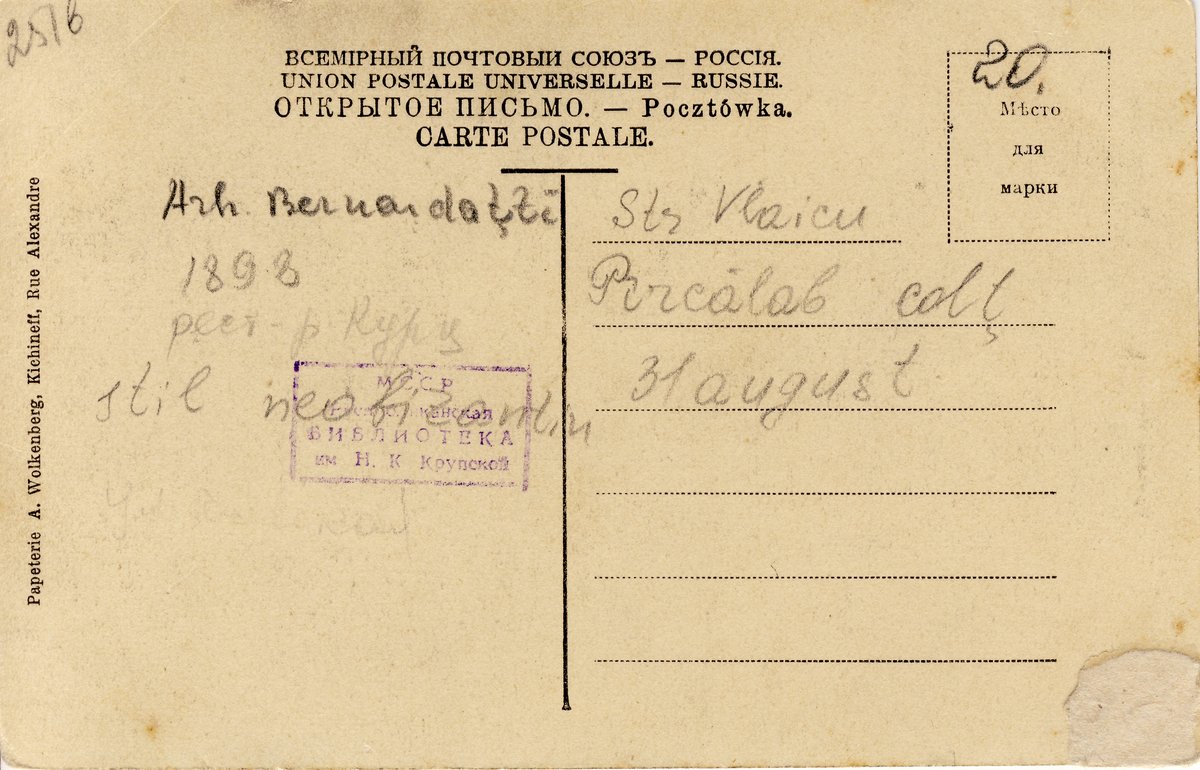 2516
ВСЕМІРНЫЙ ПОЧТОВЫИ СОЮЗЪ — РОССІЯ.
UNION POSTALE UNIVERSELLE — RUSSIE.
ОТКРЫТОЕ ПИСЬМО. — Pocztówka.
CARTE POSTALE.
20.
Мѣсто
для
марки
Papeterie A. Wolkenberg, Kichineff, Rue Alexandre
Arh. Bernardațzi
1898
рест-р Курц
stil neobizantin
МССР
Республиканская
БИБЛИОТЕКА
им Н. К Крупской
Str Vlaicu
Pîrcălab colț
31 august